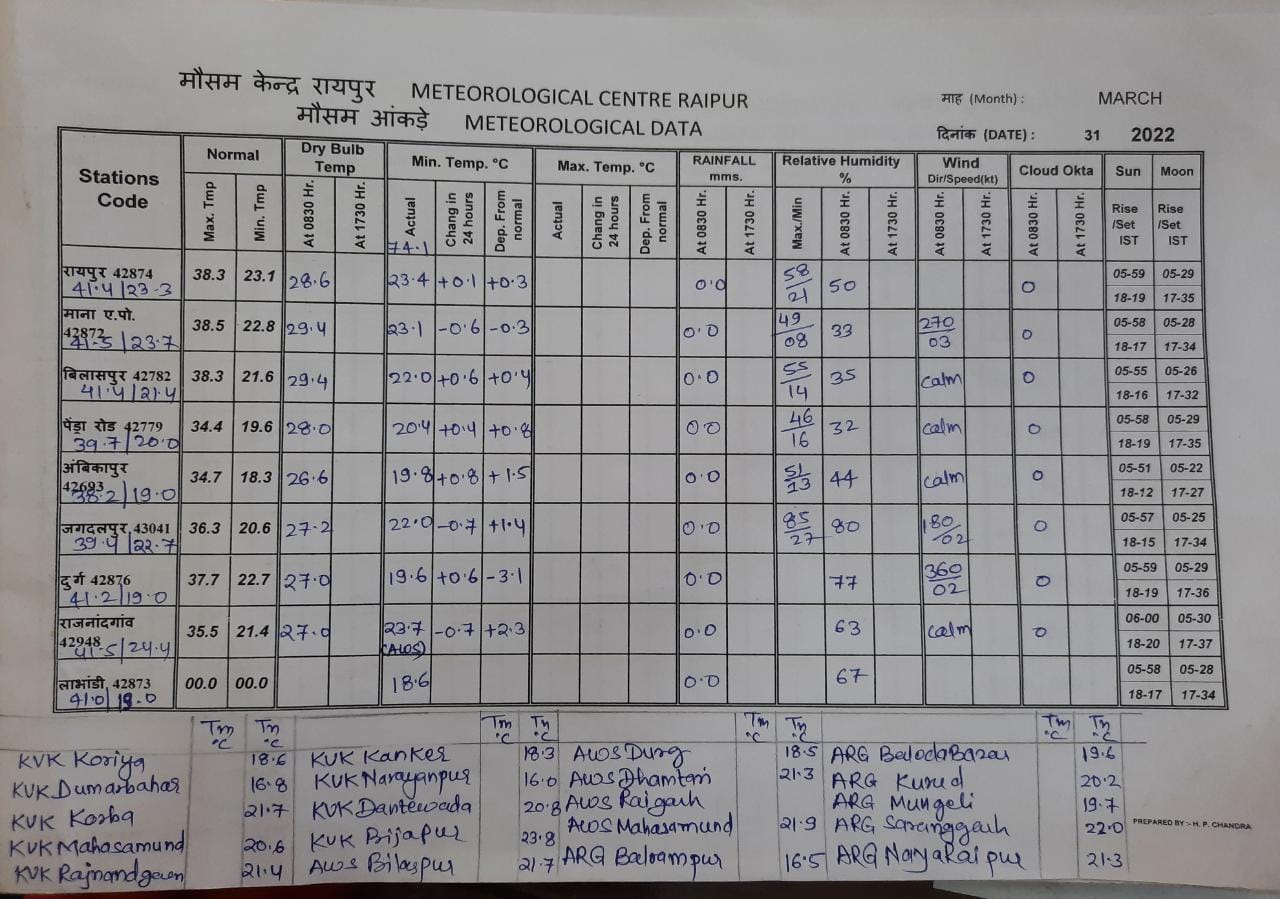 मौसम केन्द्र रायपुर METEOROLOGICAL CENTRE RAIPUR
माह (Month) : MARCH
मौसम आंकड़े METEOROLOGICAL DATA
दिनांक (DATE) : 31 2022
Stations Code Normal Dry Bulb Temp Min. Temp. °C Max. Temp. °C RAINFALL mms. Relative Humidity % Wind Dir/Speed(kt) Cloud Okta Sun Moon
Max. Tmp Min. Tmp At 0830 Hr. At 1730 Hr. Actual Chang in 24 hours Dep. From normal Actual Chang in 24 hours Dep. From normal At 0830 Hr. At 1730 Hr. Max./Min At 0830 Hr. At 1730 Hr. At 0830 Hr. At 1730 Hr. At 0830 Hr. At 1730 Hr. Rise /Set IST Rise /Set IST
74.1
रायपुर 42874 38.3 23.1 28.6 23.4 +0.1 +0.3 0.0 58/21 50 0 05-59 05-29
41.4/23.3 18-19 17-35
माना ए.पो. 42872 38.5 22.8 29.4 23.1 -0.6 -0.3 0.0 49/08 33 270/03 0 05-58 05-28
41.5/23.7 18-17 17-34
बिलासपुर 42782 38.3 21.6 29.4 22.0 +0.6 +0.4 0.0 55/14 35 calm 0 05-55 05-26
41.4/21.4 18-16 17-32
पेंड्रा रोड 42779 34.4 19.6 28.0 20.4 +0.4 +0.8 0.0 46/16 32 calm 0 05-58 05-29
39.7/20.0 18-19 17-35
अंबिकापुर 42693 34.7 18.3 26.6 19.8 +0.8 +1.5 0.0 51/13 44 calm 0 05-51 05-22
38.2/19.0 18-12 17-27
जगदलपुर 43041 36.3 20.6 27.2 22.0 -0.7 +1.4 0.0 85/27 80 180/02 0 05-57 05-25
39.4/22.7 18-15 17-34
दुर्ग 42876 37.7 22.7 27.0 19.6 +0.6 -3.1 0.0 77 360/02 0 05-59 05-29
41.2/19.0 18-19 17-36
राजनांदगांव 42948 35.5 21.4 27.0 23.7 (AWS) -0.7 +2.3 0.0 63 calm 0 06-00 05-30
41.5/24.4 18-20 17-37
लाभांडी 42873 00.0 00.0 18.6 0.0 67 05-58 05-28
41.0/19.0 18-17 17-34
Tm °C Tn °C Tm °C Tn °C Tm °C Tn °C Tm °C Tn °C
KVK Koriya 18.6 KVK Kanker 18.3 AWS Durg 18.5 ARG BalodaBazar 19.6
KVK Dumarbahar 16.8 KVK Narayanpur 16.0 AWS Dhamtari 21.3 ARG Kurud 20.2
KVK Korba 21.7 KVK Dantewada 20.8 AWS Raigarh ARG Mungeli 19.7
KVK Mahasamund 20.6 KVK Bijapur 23.8 AWS Mahasamund 21.9 ARG Saranggarh 22.0
KVK Rajnandgaon 21.4 AWS Bilaspur 21.7 ARG Balrampur 16.5 ARG Narayakalpur 21.3
PREPARED BY :- H. P. CHANDRA